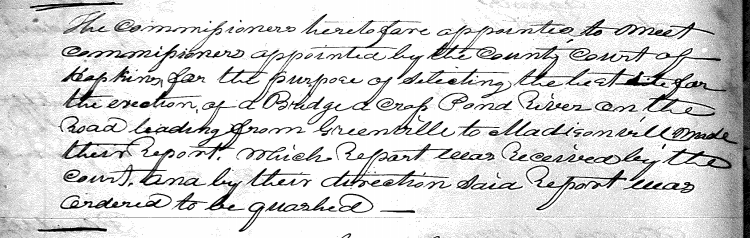 The Commissioners heretofore appointed to meet
Commissioners appointed by the County Court of
Hopkins, for the purpose of selecting the best site for
the erection, of a Bridge a cross Pond River on the
Road leading from Greenville to Madisonvill made
their Report. Which Report was Received by the
Court. and by their direction said Report was
Ordered to be quashed —